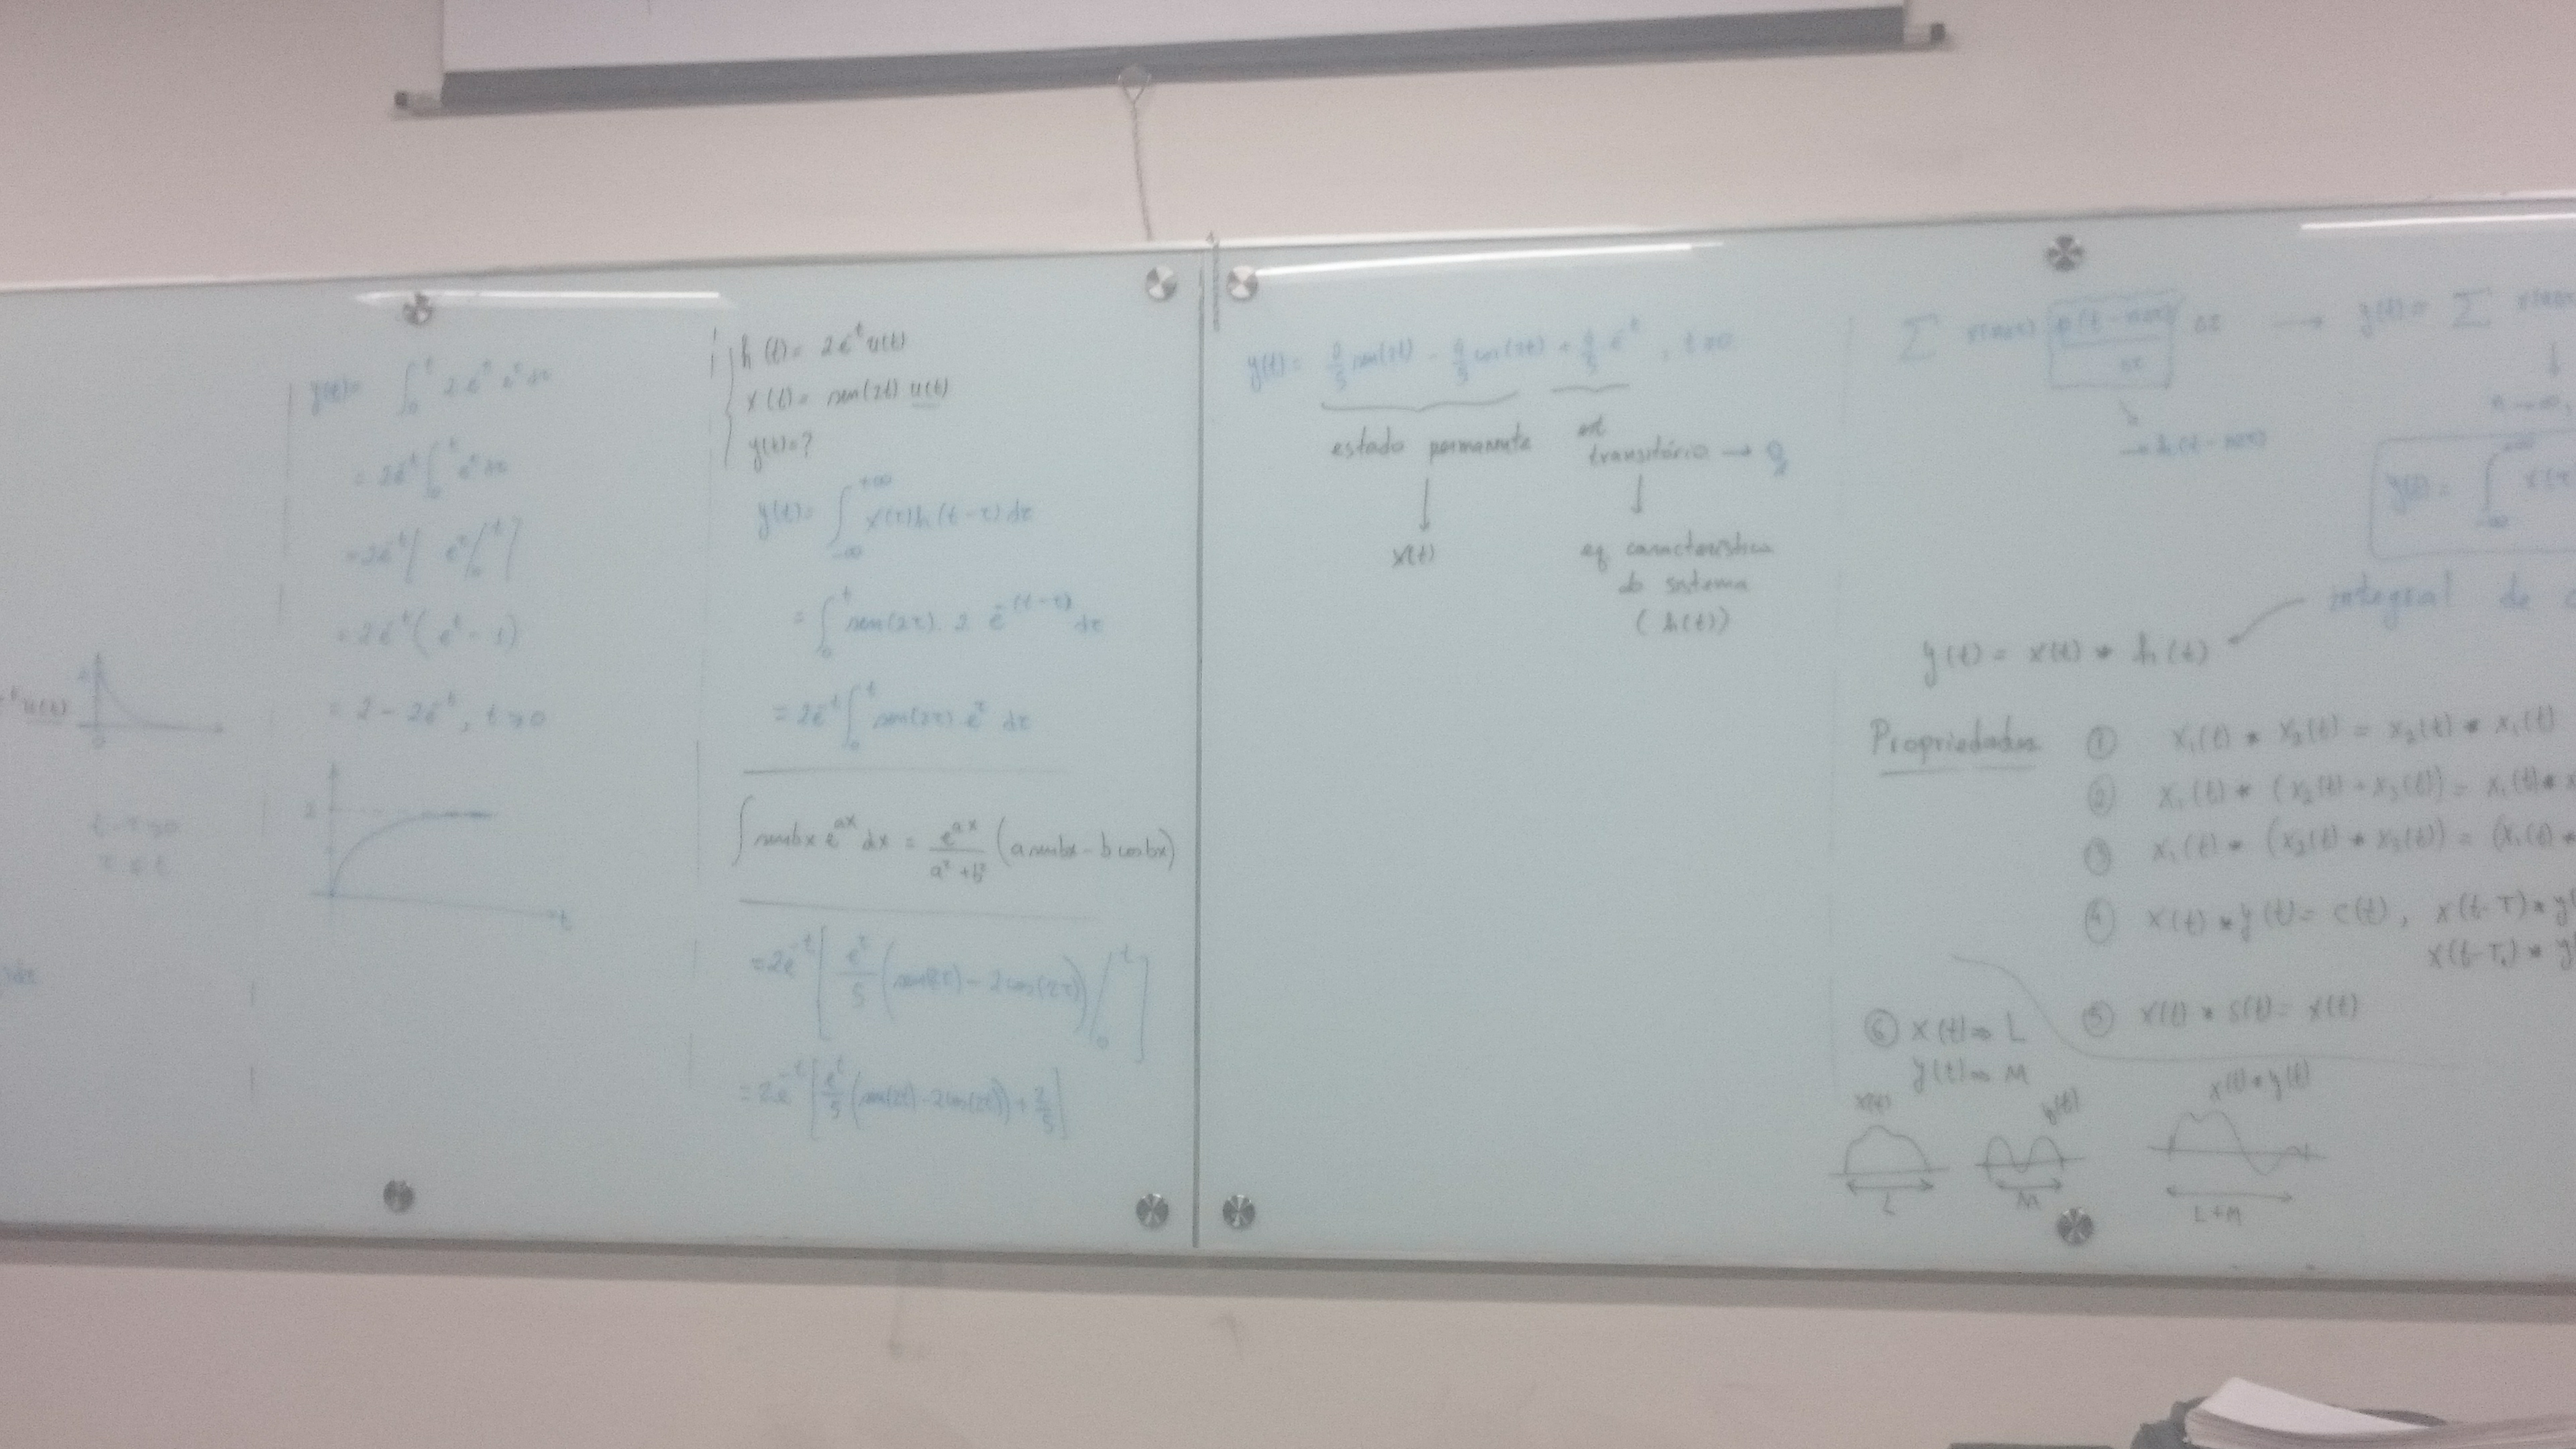 e^-t u(t)
2
0
t-τ>0
τ<t
y(t)= ∫_0^t 2e^-t e^τ dτ
= 2e^-t ∫_0^t e^τ dτ
= 2e^-t [ e^τ |_0^t ]
= 2e^-t (e^t - 1)
= 2 - 2e^-t, t>0
2
t
h(t)= 2e^-t u(t)
x(t)= sen(2t) u(t)
y(t)=?
y(t)= ∫_-∞^+∞ x(τ)h(t-τ)dτ
= ∫_0^t sen(2τ). 2 e^-(t-τ) dτ
= 2e^-t ∫_0^t sen(2τ) e^τ dτ
∫ senbx e^ax dx = e^ax/(a²+b²) (a senbx - b cosbx)
= 2e^-t [ e^τ/5 (sen(2τ) - 2cos(2τ)) |_0^t ]
= 2e^-t [ e^t/5 (sen(2t) - 2cos(2t)) + 2/5 ]
y(t)= 2/5 sen(2t) - 4/5 cos(2t) + 4/5 e^-t, t>0
estado permanente
est
transitório → 0
x(t)
eq característica
do sistema
(h(t))
∑ → y(t)= ∑
→ h(t-nΔτ)
y(t)= ∫_-∞^+∞ x(τ
integral de c
y(t) = x(t) * h(t)
Propriedades
① x₁(t) * x₂(t) = x₂(t) * x₁(t)
② x₁(t) * (x₂(t) + x₃(t)) = x₁(t) * x
③ x₁(t) * (x₂(t) * x₃(t)) = (x₁(t) *
④ x(t) * y(t) = c(t), x(t-T) * y(
x(t-T₁) * y(
⑤ x(t) * δ(t) = x(t)
⑥ x(t) ⇒ L
y(t) ⇒ M
x(t)
y(t)
x(t) * y(t)
L
M
L+M